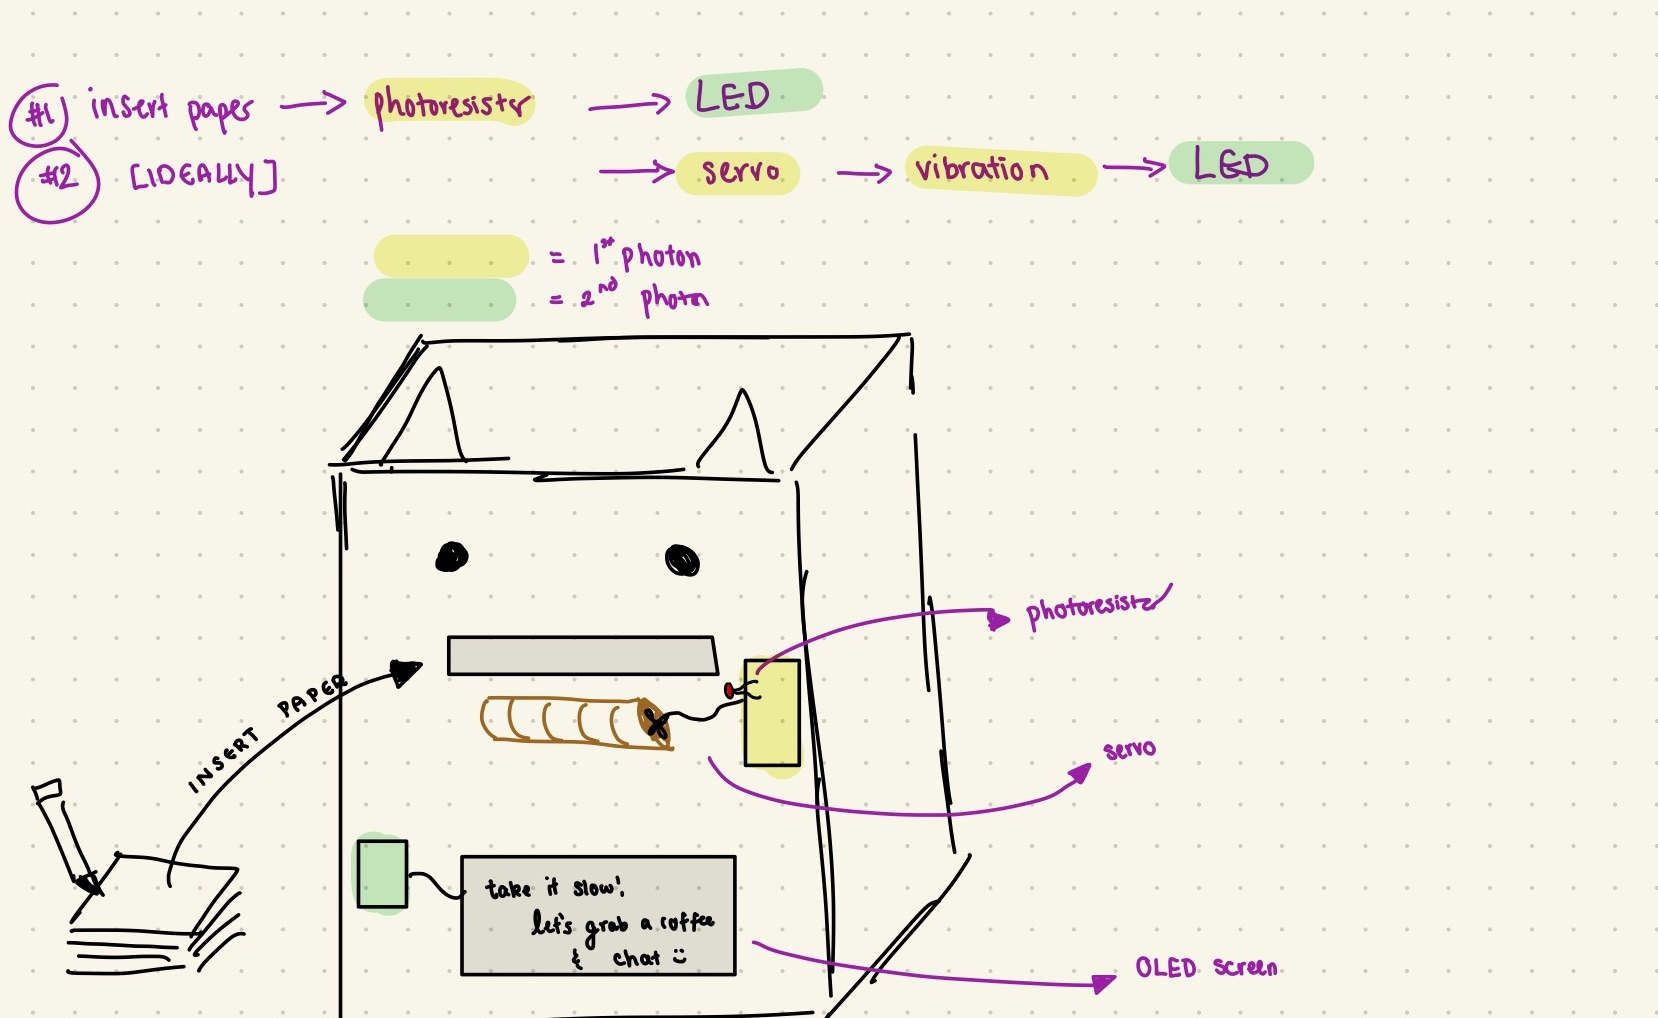 #1 insert paper → photoresistor → LED
#2 [IDEALLY] → servo → vibration → LED
= 1st photon
= 2nd photon
photoresistor
INSERT PAPER
servo
take it slow!
let's grab a coffee
& chat :)
OLED screen